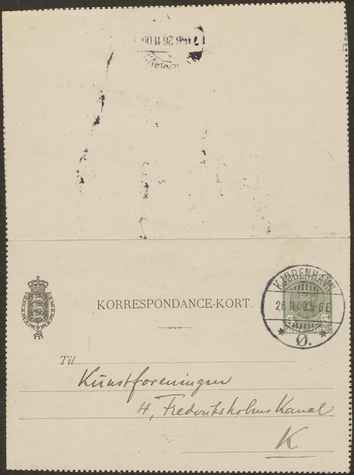 KORRESPONDANCE-KORT.
KJØBENHAVN
Ø.
Til
Kunstforeningen
4, Frederiksholms Kanal
K